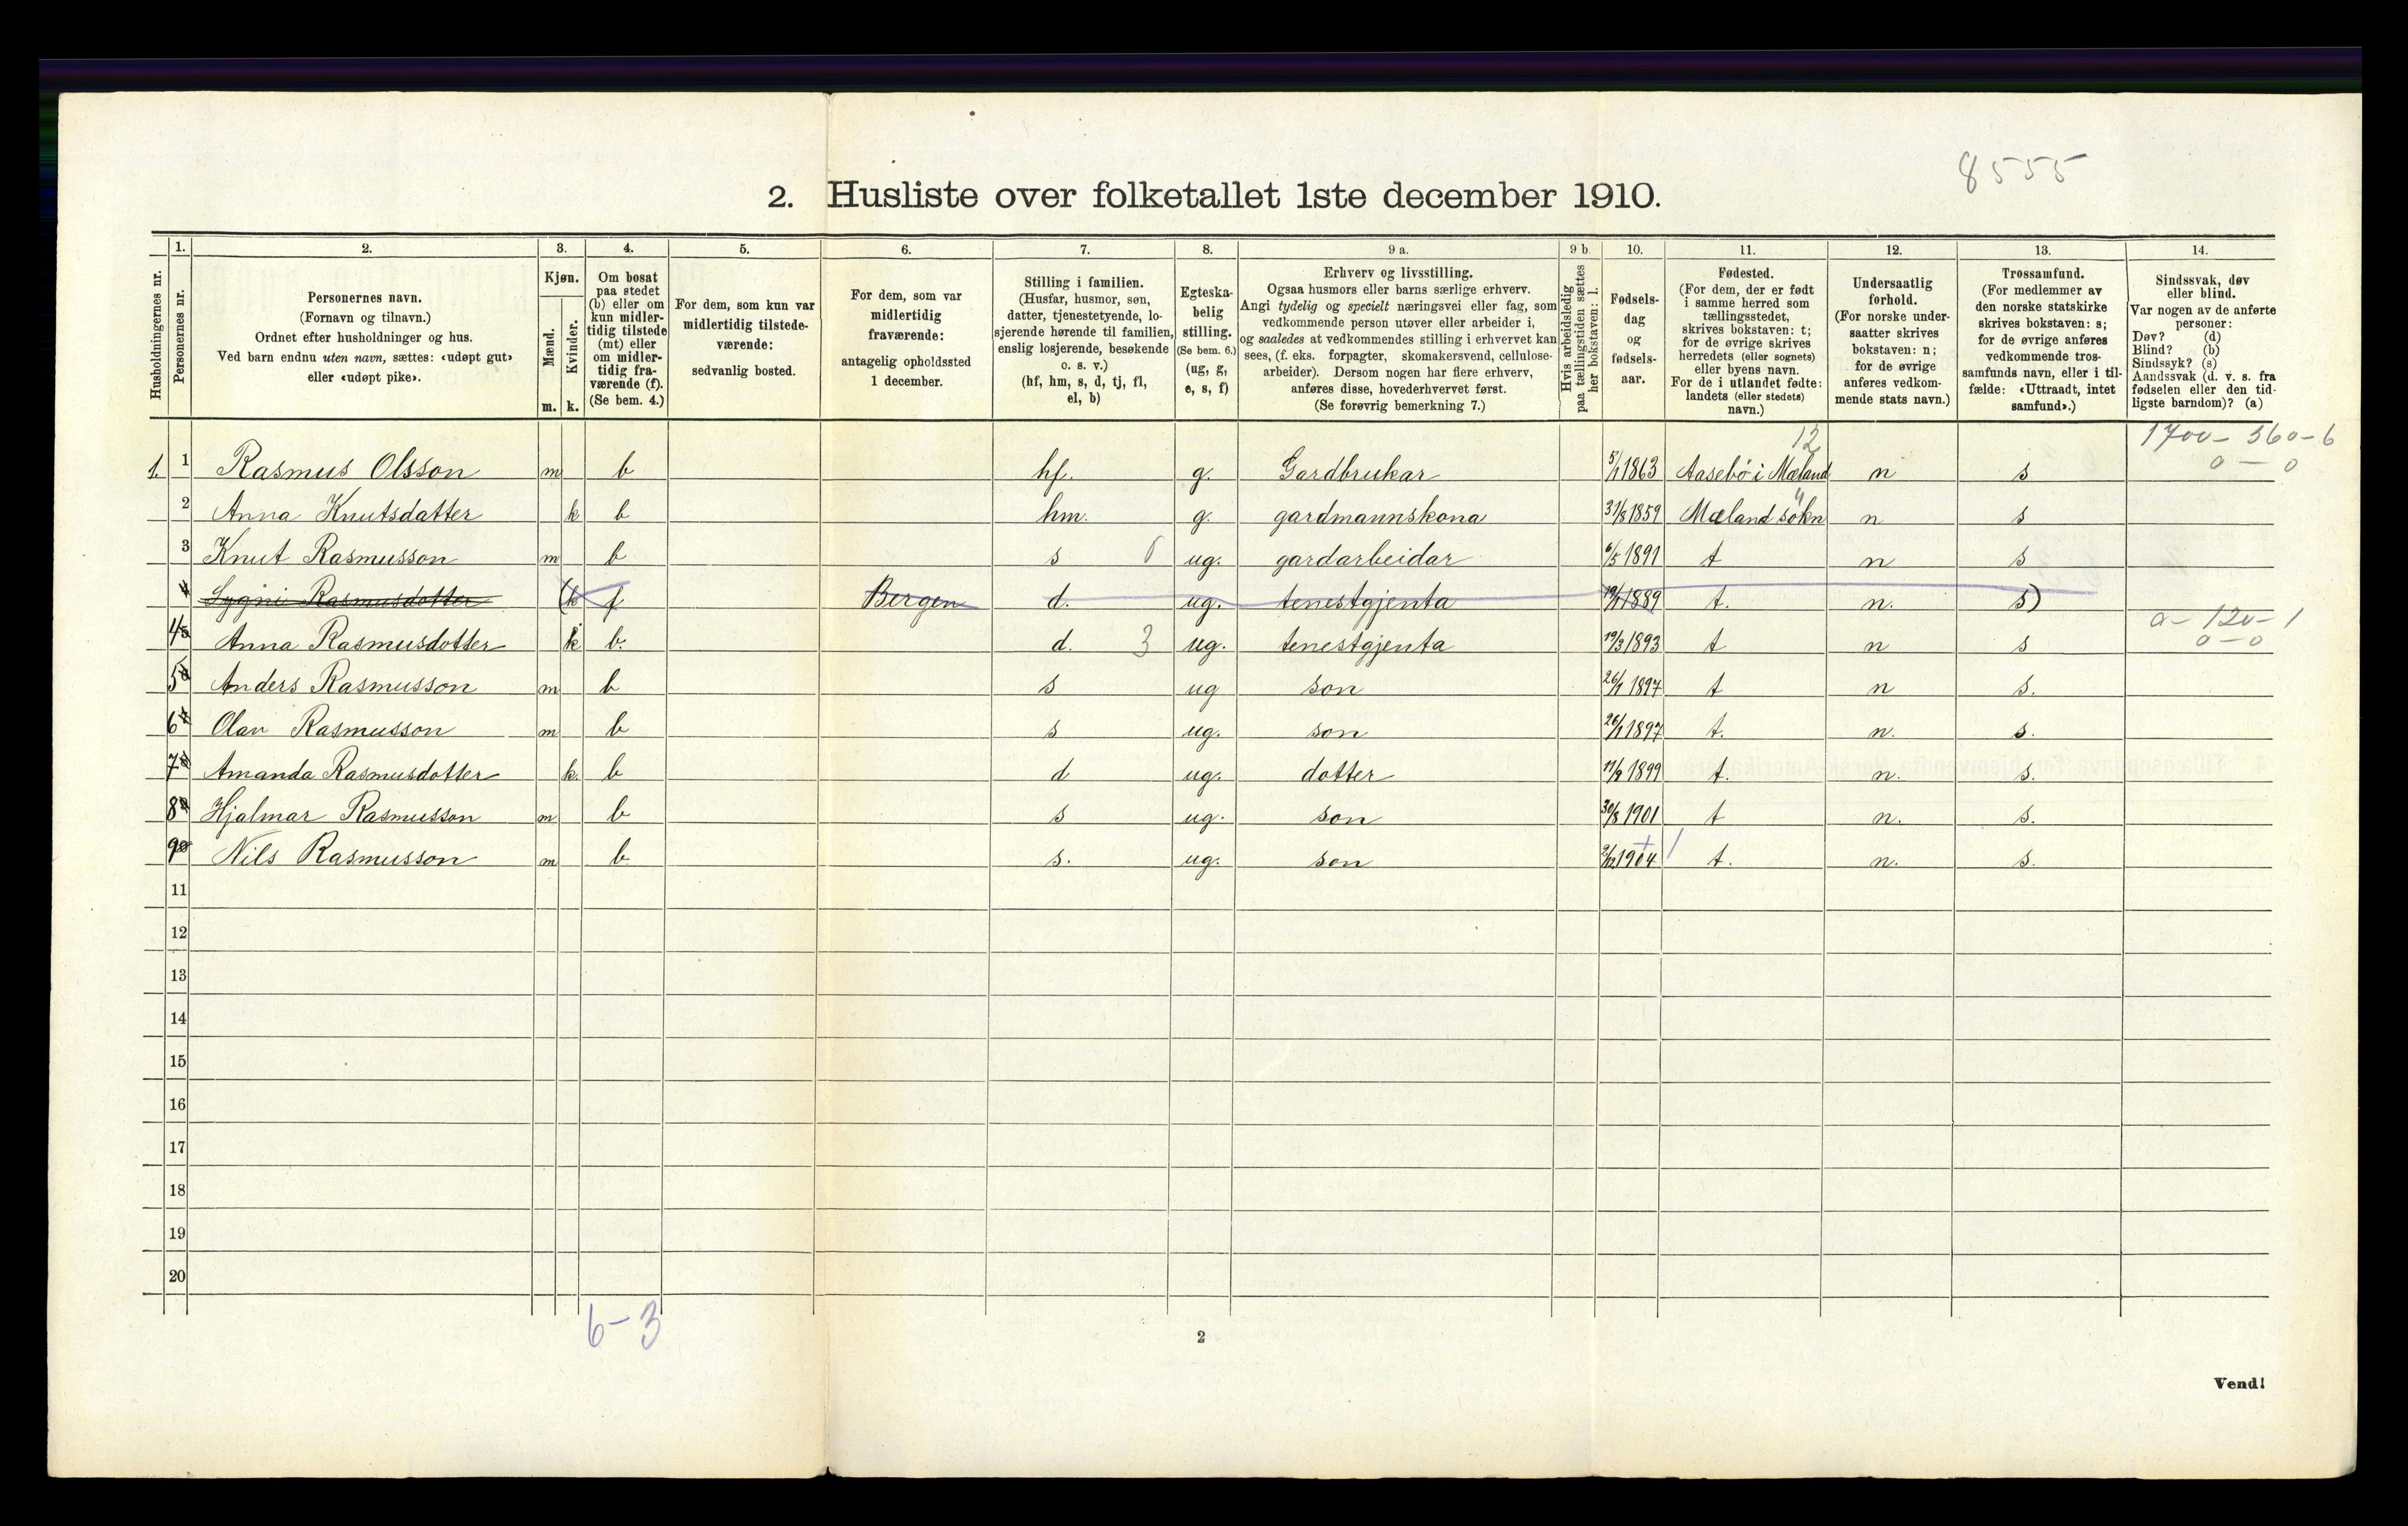 8555
2. Husliste over folketallet 1ste december 1910.
Husholdningernes nr.
1.
Personernes nr.
2.
Personernes navn.
(Fornavn og tilnavn.)
Ordnet efter husholdninger og hus.
Ved barn endnu uten navn, sættes: «udøpt gut»
eller «udøpt pike».
3.
Kjøn.
Mænd.
Kvinder.
m. k.
4.
Om bosat
paa stedet
(b) eller om
kun midler-
tidig tilstede
(mt) eller
om midler-
tidig fra-
værende (f).
(Se bem. 4.)
5.
For dem, som kun var
midlertidig tilstede-
værende:
sedvanlig bosted.
6.
For dem, som var
midlertidig
fraværende:
antagelig opholdssted
1 december.
7.
Stilling i familien.
(Husfar, husmor, søn,
datter, tjenestetyende, lo-
sjerende hørende til familien,
enslig losjerende, besøkende
o. s. v.)
(hf, hm, s, d, tj, fl,
el, b)
8.
Egteska-
belig
stilling.
(Se bem. 6.)
(ug, g,
e, s, f)
9 a.
Erhverv og livsstilling.
Ogsaa husmors eller barns særlige erhverv.
Angi tydelig og specielt næringsvei eller fag, som
vedkommende person utøver eller arbeider i,
og saaledes at vedkommendes stilling i erhvervet kan
sees, (f. eks. forpagter, skomakersvend, cellulose-
arbeider). Dersom nogen har flere erhverv,
anføres disse, hovederhvervet først.
(Se forøvrig bemerkning 7.)
9 b
Hvis arbeidsledig
paa tællingstiden sættes
her bokstaven: l.
10.
Fødsels-
dag
og
fødsels-
aar.
11.
Fødested.
(For dem, der er født
i samme herred som
tællingsstedet,
skrives bokstaven: t;
for de øvrige skrives
herredets (eller sognets)
eller byens navn.
For de i utlandet fødte:
landets (eller stedets)
navn.)
12.
Undersaatlig
forhold.
(For norske under-
saatter skrives
bokstaven: n;
for de øvrige
anføres vedkom-
mende stats navn.)
13.
Trossamfund.
(For medlemmer av
den norske statskirke
skrives bokstaven: s;
for de øvrige anføres
vedkommende tros-
samfunds navn, eller i til-
fælde: «Uttraadt, intet
samfund».)
14.
Sindssvak, døv
eller blind.
Var nogen av de anførte
personer:
Døv? (d)
Blind? (b)
Sindssyk? (s)
Aandssvak (d. v. s. fra
fødselen eller den tid-
ligste barndom)? (a)
12 1700 - 360 - 6
1. 1 Rasmus Olsson m b hf. g. Gardbrukar 5/1 1863 Aasebö i Mæland n s 0 - 0
2 Anna Knutsdatter k b hm. g. gardmannskona 31/8 1859 Mæland sokn n s
3 Knut Rasmusson m b s 0 ug. gardarbeidar 6/5 1891 t n s
4 Rasmusdotter (k f Bergen d. ug. tenestgjenta 1889 t. n. s)
0 - 120 - 1
4 5 Anna Rasmusdotter k b. d. 3 ug. tenestgjenta 19/3 1893 t n s 0 - 0
5 6 Anders Rasmusson m b s ug son 26/1 1897 t n s.
6 7 Olav Rasmusson m b s ug. son 26/1 1897 t. n. s.
7 8 Amanda Rasmusdotter k. b d ug. dotter 11/9 1899 t. n. s.
8 9 Hjalmar Rasmusson m b s ug. son 30/8 1901 t n. s.
9 10 Nils Rasmusson m b s. ug. son 9/12 1904 t. n. s.
11
12
13
14
15
16
17
18
19
20
6 - 3
2
Vend!